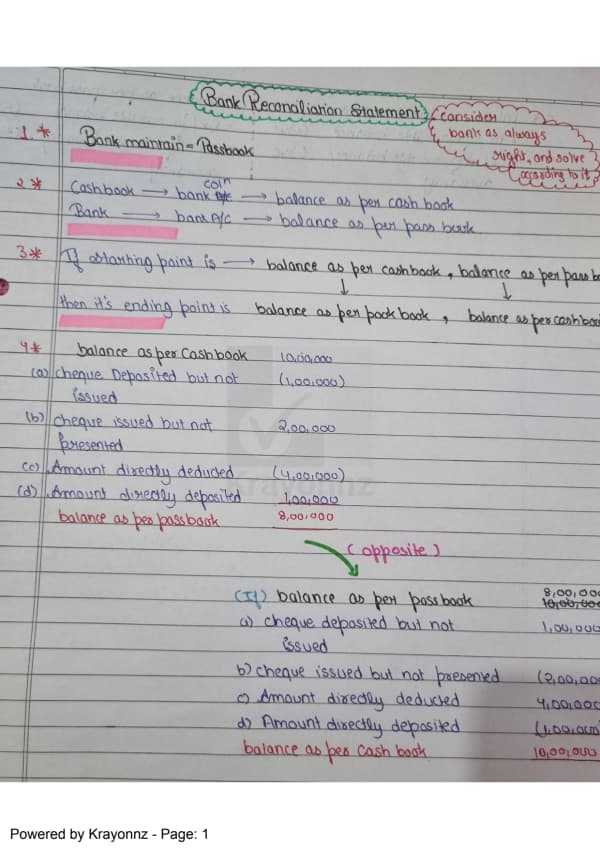 Bank Reconciliation Statement
(consider
bank as always
right, and solve
according to it)
1.* Bank maintain = Passbook
2* Cashbook → bank coin → balance as per cash book
Bank → bank A/c → balance as per pass book
3* If starting point is → balance as per cashbook, balance as per pass b
↓ ↓
then it's ending point is balance as per pook book, balance as per cashboo
4* balance as per Cashbook 10,00,000
(a) Cheque Deposited but not (1,00,000)
issued
(b) cheque issued but not 2,00,000
presented
(c) Amount directly deducted (4,00,000)
(d) Amount directly deposited 1,00,000
balance as per passbook 8,00,000
Krayonnz
(opposite)
(If) balance as per passbook 8,00,000
10,00,000
a) cheque deposited but not 1,00,000
issued
b) cheque issued but not presented (2,00,000
c) Amount directly deducted 4,00,000
d) Amount directly deposited (1,00,000)
balance as per cash book 10,00,000
Powered by Krayonnz - Page: 1